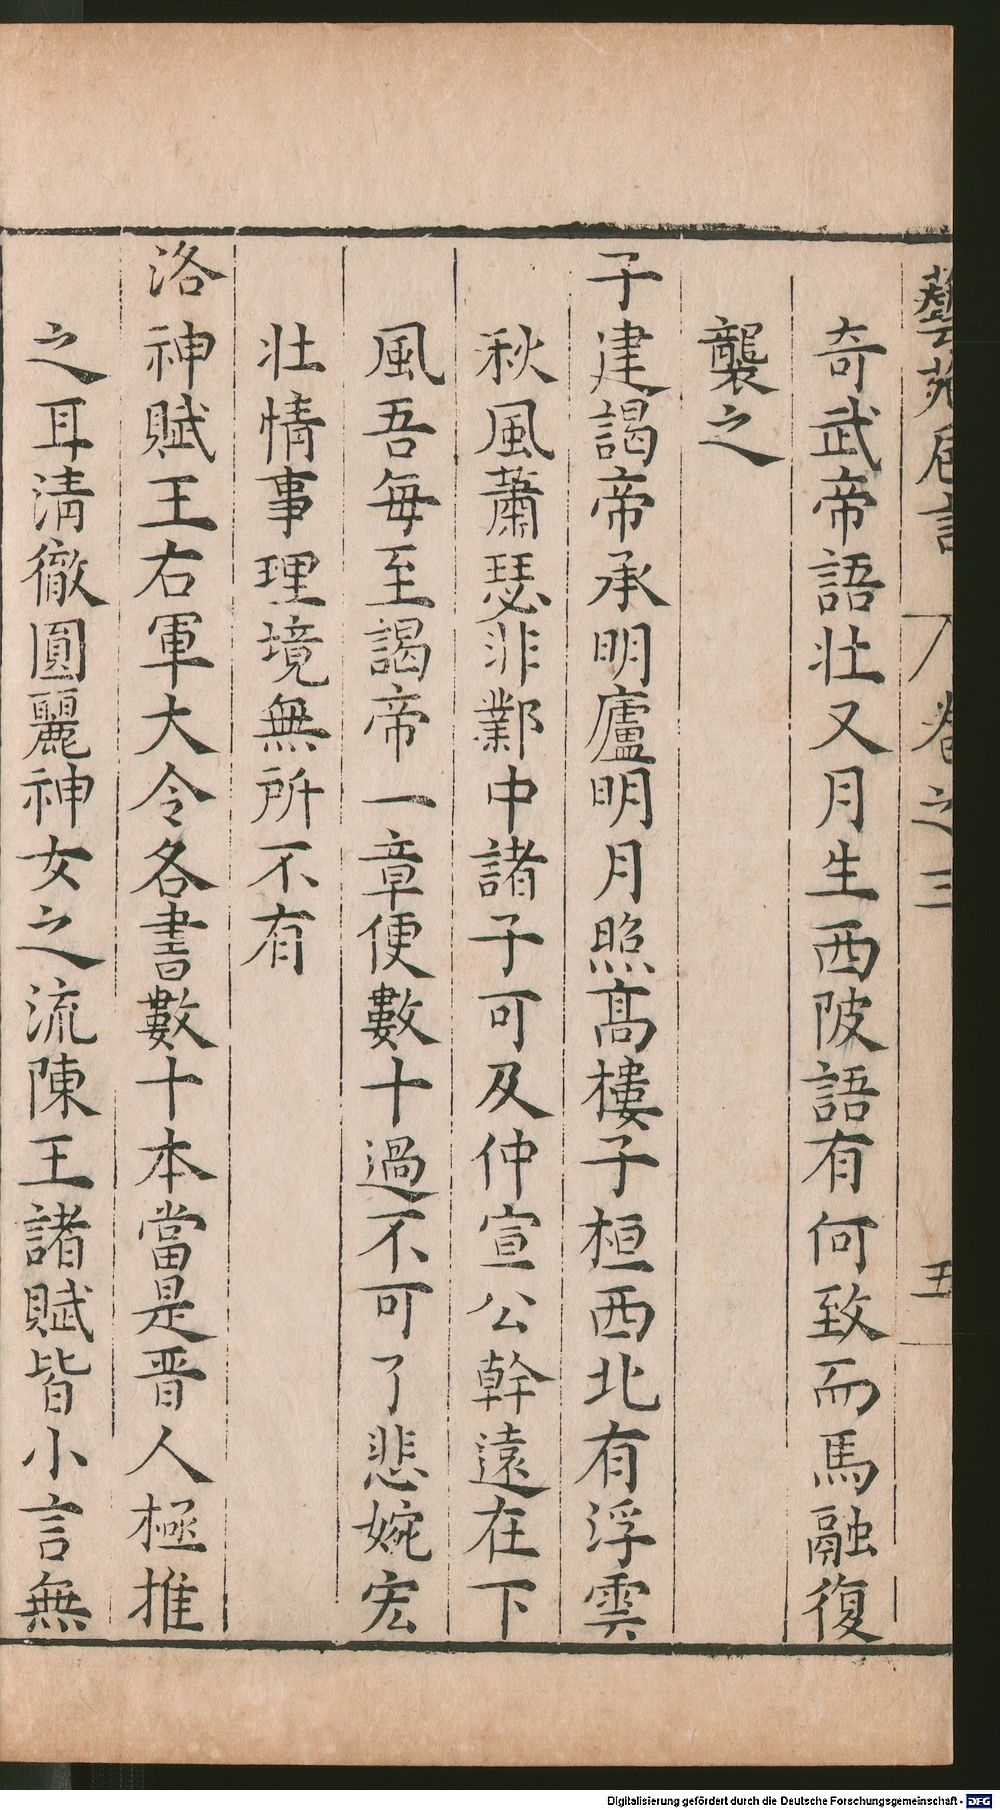 藝苑卮言 卷之三 五
奇武帝語壯又月生西陂語有何致而馬融復
襲之
子建謁帝承明廬明月照高樓子桓西北有浮雲
秋風蕭瑟非鄴中諸子可及仲宣公幹遠在下
風吾每至謁帝一章便數十過不可了悲婉宏
壯情事理境無所不有
洛神賦王右軍大令各書數十本當是晋人極推
之耳清徹圓麗神女之流陳王諸賦皆小言無
Digitalisierung gefördert durch die Deutsche Forschungsgemeinschaft - DFG